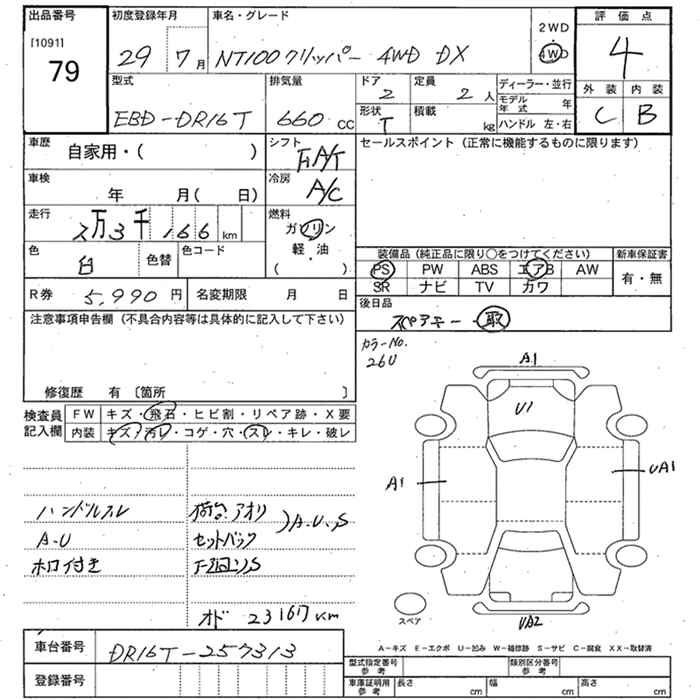 出品番号
[1091]
79
初度登録年月
29 7月
車名・グレード
NT100クリッパー 4WD DX
2WD
4WD
評価点
4
外装 内装
C B
型式
EBD-DR16T
排気量
660 CC
ドア
2
定員
2人
形状
T
積載
kg
ディーラー・並行
モデル年式 年
ハンドル 左・右
車歴
自家用・( )
シフト
A/T
セールスポイント(正常に機能するものに限ります)
車検
年 月( 日)
冷房
A/C
走行
2万3千166km
燃料
ガソリン
軽・油
( )
色
白
色替
色コード
装備品(純正品に限り○をつけてください)
新車保証書
PS PW ABS エアB AW
SR ナビ TV カワ
有・無
R券 5,990円
名変期限 月 日
後日品
スペアキー・取
注意事項申告欄(不具合内容等は具体的に記入して下さい)
修復歴 有〔箇所 〕
カラーNo.
26U
検査員記入欄
FW キズ・飛石・ヒビ割・リペア跡・X要
内装 キズ・汚レ・コゲ・穴・スレ・キレ・破レ
ハンドルスレ
A・U
ホロ付き
荷台アオリ
セットバック
)A.U.S
下回りS
オド 23167km
A1
U1
A1
UA1
UA2
スペア
A-キズ E-エクボ U-凹み W-補修跡 S-サビ C-腐食 XX-取替済
車台番号
DR16T-257313
登録番号
型式指定番号参考
類別区分番号参考
車庫証明用参考
長さ cm 幅 cm 高さ cm